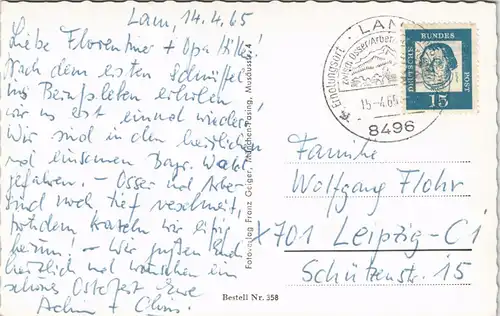 Lam, 14.4.65
Liebe Florentiner + Opa
Nach dem ersten Schnüffeln
im Berufsleben erholen
wir uns erst einmal wieder!
Wir sind in den herrlichen
und einsamen Bayr. Wald
gefahren. – Osser und Arber
sind noch tief verschneit,
trotzdem kraxeln wir eifig
herum! – Wir grüßen Euch
herzlich und wünschen ein
schönes Osterfest Eure
Achim + Chris.
Fotoverlag Franz Geiger, München-Pasing, 4
Bestell Nr. 358
LAM
Erholungsort
Osser/Arber
15.-4.65
8496
DEUTSCHE
BUNDES
POST
15
Familie
Wolfgang Flohr
X 701 Leipzig-C1
Schützenstr. 15